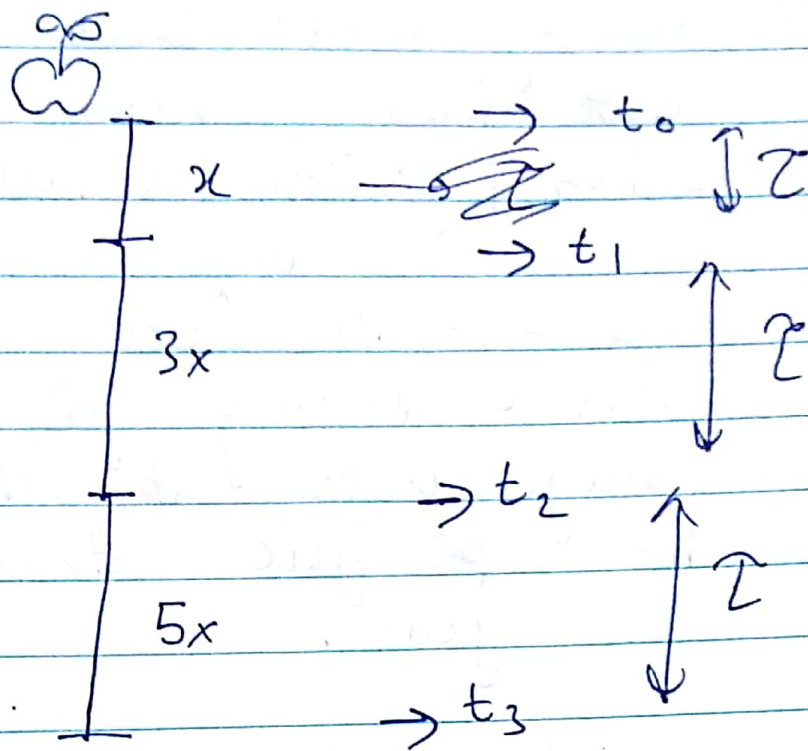 t₀
x τ
t₁
3x τ
t₂
5x τ
t₃